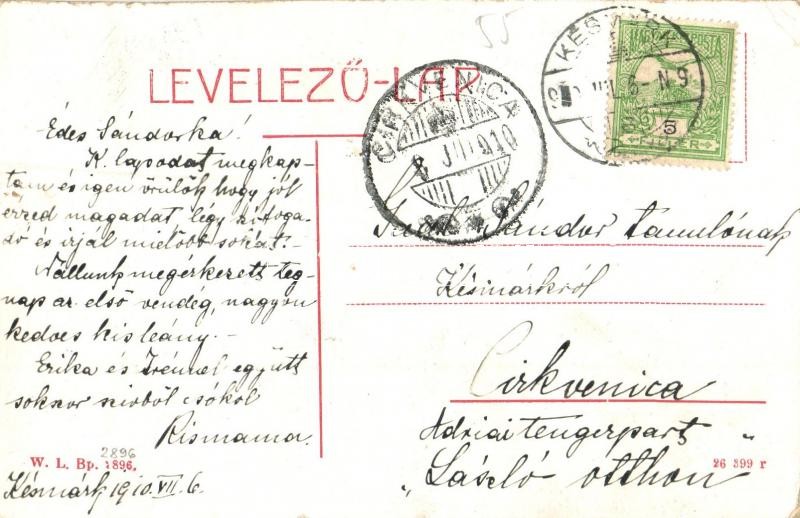 55
LEVELEZŐ-LAP
Édes Sándorka!
K. lapodat megkap-
tam és igen örülök hogy jól
érzed magadat légy szófoga-
dó és írjál mielőbb sokat.-
Nállunk megérkezett teg-
nap az első vendég, nagyon
kedves kis leány.-
Erika és Irénnel együtt
sokszor szivből csókol
Kismama.
2896
W. L. Bp. 1896.
Késmárk 1910. VII. 6.
CIRKVENICA
8 JUL 910
KÉSMÁRK
6-N 9
MAGYAR POSTA
5
Sándor tanulónak
Késmárkról
Cirkvenica
Adriai tengerpart
„László-otthon"
26 399 r